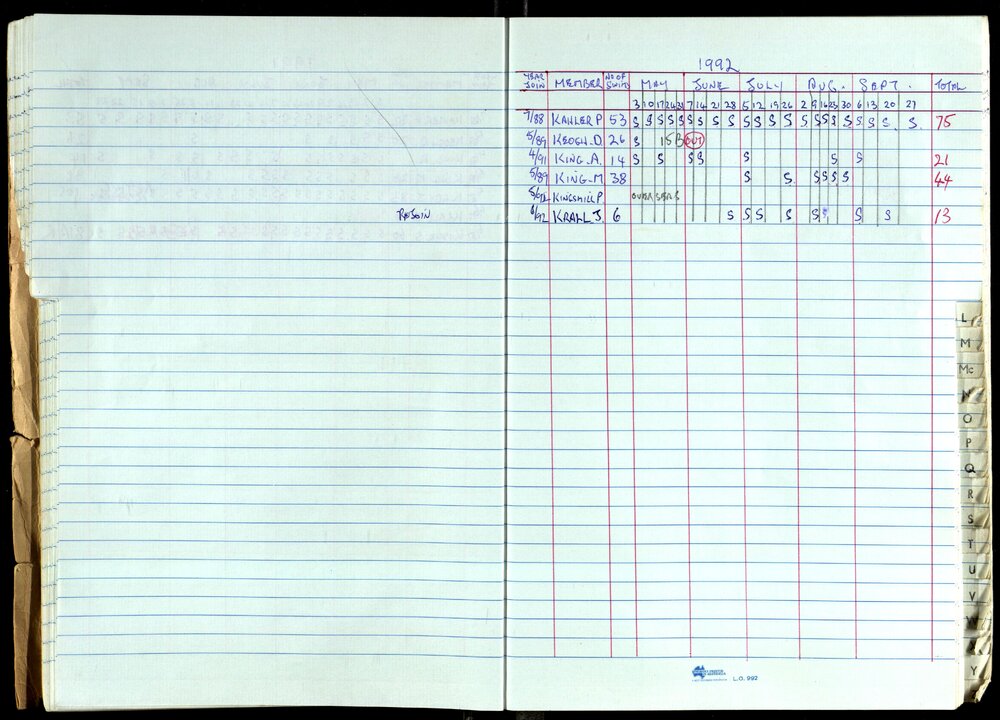 1992
YEAR JOIN MEMBER NO OF SWIMS MAY JUNE JULY AUG. SEPT. TOTAL
3 10 17 24 31 7 14 21 28 5 12 19 26 2 9 16 23 30 6 13 20 27
7/88 KAHLER P 53 S S S S S S S S S S S S S S S S S S S S S S. 75
5/89 KEOGH.D. 26 S 15B OUT
4/91 KING.A. 14 S S S S S S S 21
5/89 KING.M. 38 S S. S S S S 44
KINGSMILL P. OVERSEAS
REJOIN 6/92 KRAHL J. 6 S S S S S S S S 13
L
M
Mc
N
O
P
Q
R
S
T
U
V
W
Y
L.O. 992